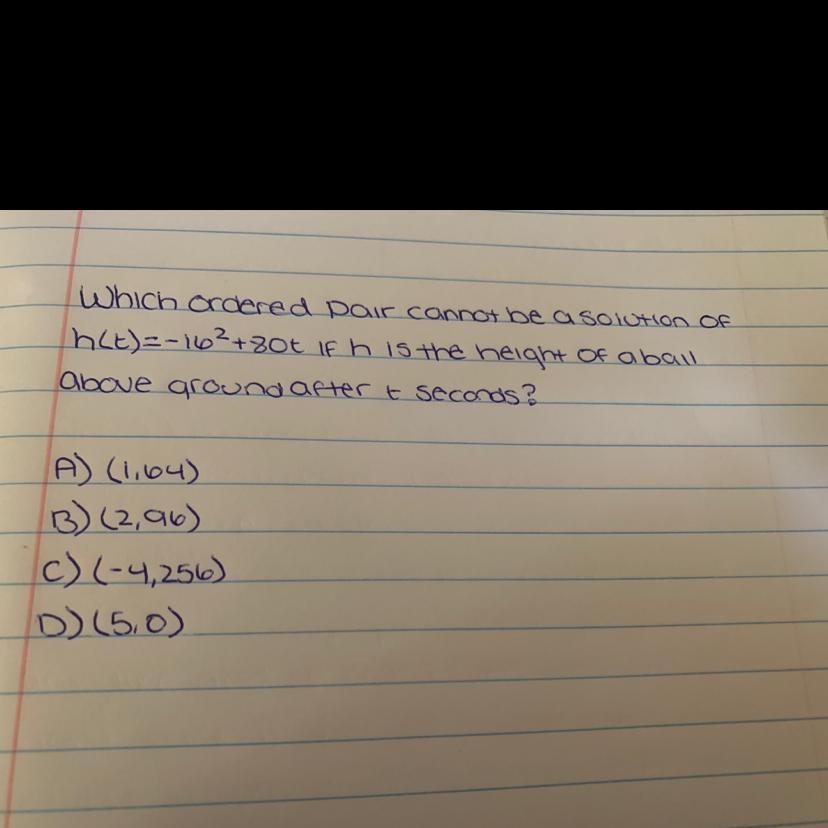 Which ordered pair cannot be a solution of
h(t)=-16²+80t if h is the height of a ball
above ground after t seconds?
A) (1,64)
B) (2,96)
C) (-4,256)
D) (5,0)